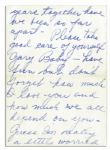 years together have
we been so far
apart – Please take
good care of yourself
Baby – have
fun and don't
forget how much
I love you and
how much we all
depend on you –
Guess I'm really
a little worried